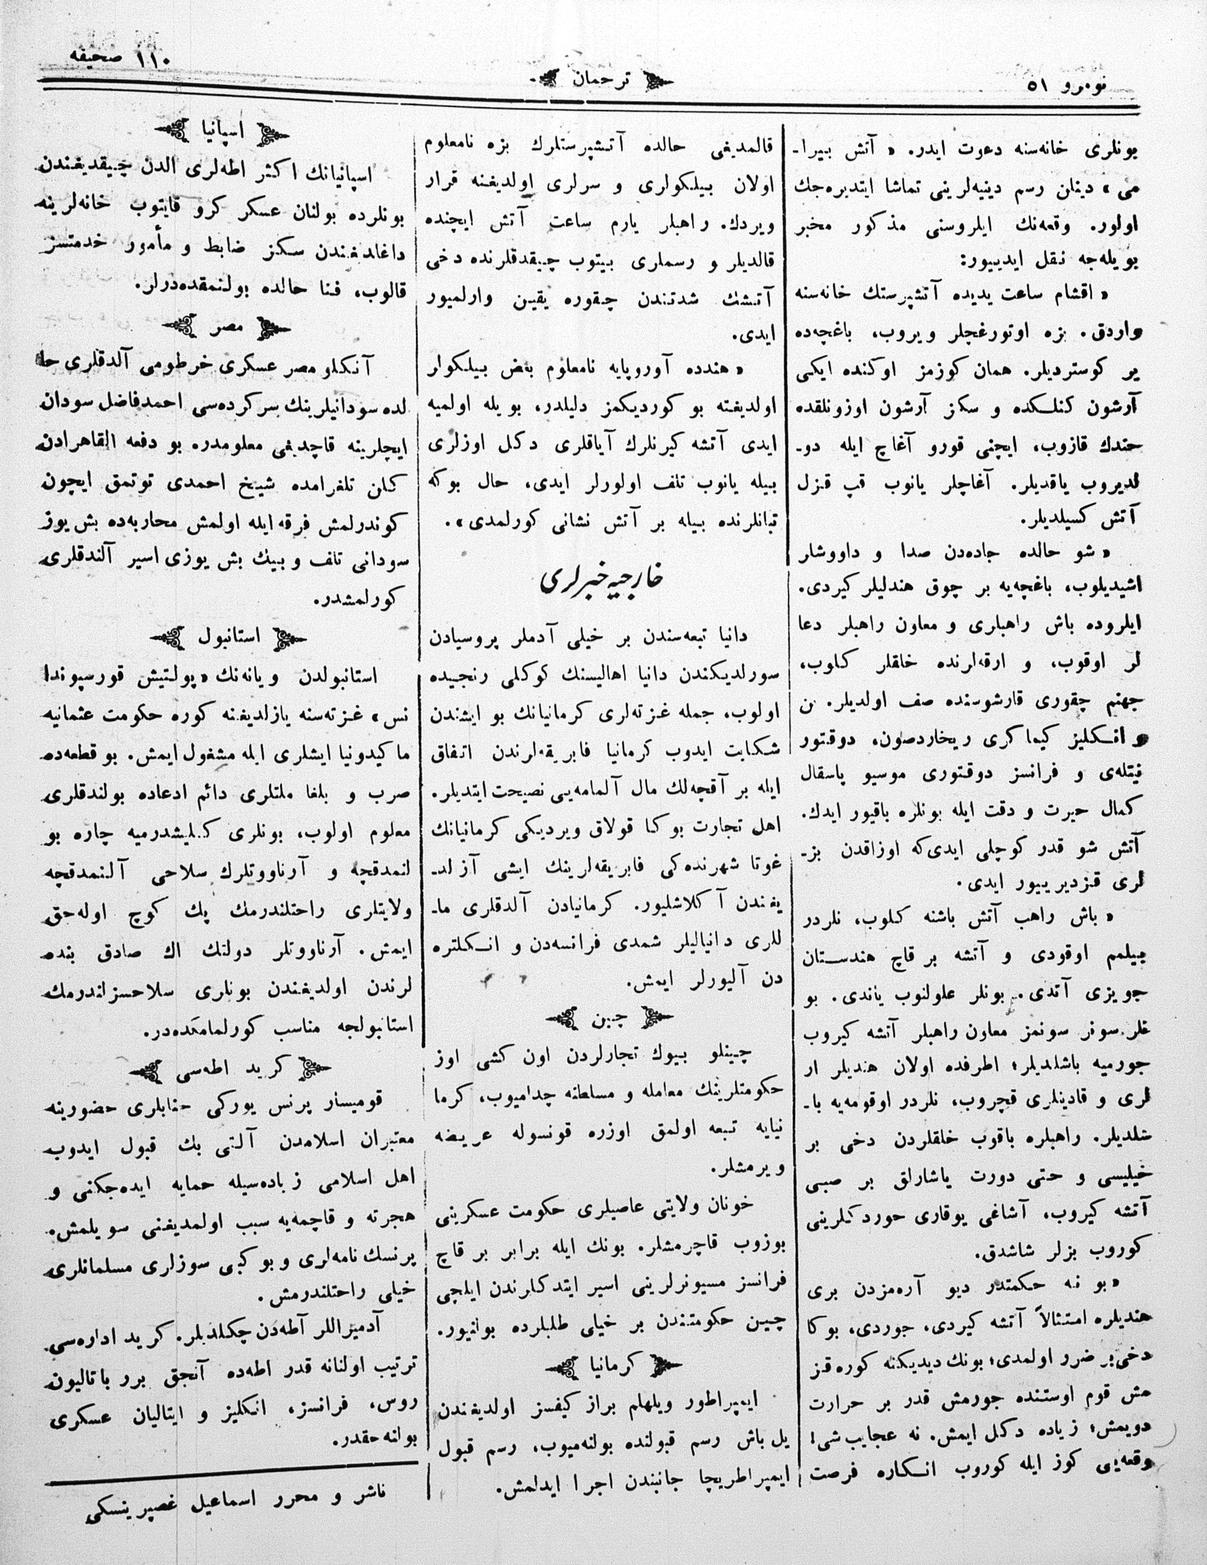 نومرو ٥١
ترجمان
١١٠ صحیفه
بونلری خانه‌سنه دعوت ایدر. « آتش بیرا-
می » دینلن رسم دینیه‌لرینی تماشا ایتدیره‌جك
اولور. وقعه‌نك ایلروسنی مذكور مخبر
بویله‌جه نقل ایدییور:
« اقشام ساعت یدیده آتشپرستك خانه‌سنه
واردق. بزه اوتورغچلر ویروب، باغچه‌ده
یر كوستردیلر. همان كوزمز اوكنده ایكی
آرشون كنلكده و سكز آرشون اوزونلقده
خندك قازوب، ایچنی قورو آغاچ ایله دو-
لدیروب یاقدیلر. آغاچلر یانوب قپ قزل
آتش كسیلدیلر.
« شو حالده جاده‌دن صدا و داووشلر
اشیدیلوب، باغچه‌یه بر چوق هندلیلر كیردی.
ایلروده باش راهبلری و معاون راهبلر دعا
لر اوقوب، و ارقه‌لرنده خلقلر كلوب،
جهنم چقوری قارشوسنده صف اولدیلر. بن
و انكلیز كیماكری ریخاردصون، دوقتور
فیتله‌ی و فرانسز دوقتوری موسیو پاسقال
كمال حیرت و دقت ایله بونلره باقیور ایدك.
آتش شو قدر كوچلی ایدی‌كه اوزاقدن بز-
لری قزدیرییور ایدی.
« باش راهب آتش باشنه كلوب، نلردر
بیلمم اوقودی و آتشه بر قاچ هندستان
جویزی آتدی. بونلر علولنوب یاندی. بو
نلر سوڭر سونمز معاون راهبلر آتشه كیروب
جورمیه باشلدیلر؛ اطرفده اولان هندیلر ار
لری و قادینلری قچروب، نلردر اوقومه‌یه با-
شلدیلر. راهبلره باقوب خلقلردن دخی بر
خیلیسی و حتی دورت یاشارلق بر صبی
آتشه كیروب، آشاغی یوقاری جوردكلرینی
كوروب بزلر شاشدق.
« بو نه حكمتدر دیو آره‌مزدن بری
هندیلره امتثالاً آتشه كیردی، جوردی، بوكا
دخی بر ضرر اولمدی؛ بونك دیدیكنه كوره قز
مش قوم اوستنده جورمش قدر بر حرارت
دویمش؛ زیاده دكل ایمش. نه عجایب شی!
وقعه‌یی كوز ایله كوروب انكاره فرصت
قالمدیغی حالده آتشپرستلرك بزه نامعلوم
اولان بیلكولری و سرلری اولدیغنه قرار
ویردك. راهبلر یارم ساعت آتش ایچنده
قالدیلر و رسملری بیتوب چیقدقلرنده دخی
آتشك شدتندن چقوره یقین وارلمیور
ایدی.
« هندده آوروپایه نامعلوم بعض بیلكولر
اولدیغنه بو كوردیكمز دلیلدر، بویله اولمیه
ایدی آتشه كیرنلرك آیاقلری دكل اوزلری
بیله یانوب تلف اولورلر ایدی، حال بوكه
تبانلرنده بیله بر آتش نشانی كورلمدی».
خارجیه خبرلری
دانیا تبعه‌سندن بر خیلی آدملر پروسیادن
سورلدیكندن دانیا اهالیسنك كوكلی رنجیده
اولوب، جمله غزته‌لری كرمانیانك بو ایشندن
شكایت ایدوب كرمانیا فابریقه‌لرندن اتفاق
ایله بر آقچه‌لك مال آلمامه‌یی نصیحت ایتدیلر.
اهل تجارت بوكا قولاق ویردیكی كرمانیانك
غوتا شهرنده‌كی فابریقه‌لرینك ایشی آزلد-
یغندن آكلاشلیور. كرمانیادن آلدقلری ما-
للری دانیالیلر شمدی فرانسه‌دن و انكلتره
دن آلیورلر ایمش.
چین
چینلو بیوك تجارلردن اون كشی اوز
حكومتلرینك معامله و مسلطنه چدامیوب، كرما
نیایه تبعه اولمق اوزره قونسوله عریضه
ویرمشلر.
خونان ولایتی عاصیلری حكومت عسكرینی
بوزوب قاچرمشلر. بونك ایله برابر بر قاچ
فرانسز مسیونرلرینی اسیر ایتدكلرندن ایلچی
چین حكومتندن بر خیلی طلبلرده بولنیور.
كرمانیا
ایمپراطور ویلهلم براز كیفسز اولدیغندن
یل باش رسم قبولنده بولنه‌میوب، رسم قبول
ایمپراطریچا جانبندن اجرا ایدلمش.
اسپانیا
اسپانیانك اكثر اطه‌لری الدن چیقدیغندن
بونلرده بولنان عسكر كرو قایتوب خانه‌لرینه
داغلدیغندن سكز ضابط و مأمور خدمتسز
قالوب، فنا حالده بولنمقده‌درلر.
مصر
آنكلو مصر عسكری خرطومی آلدقلری حا
لده سودانیلرینك سركرده‌سی احمدفاضل سودان
ایچلرینه قاچدیغی معلومدر. بو دفعه القاهرادن
كلن تلغرامده شیخ احمدی توتمق ایچون
كوندرلمش فرقه ایله اولمش محاربه‌ده بش یوز
سودانی تلف و بیك بش یوزی اسیر آلندقلری
كورلمشدر.
استانبول
استانبولدن ویانه‌نك «پولتیش قورسپوندا
نس» غزته‌سنه یازلدیغنه كوره حكومت عثمانیه
ماكیدونیا ایشلری ایله مشغول ایمش. بو قطعه‌ده
صرب و بلغا ملتلری دائم ادعاده بولندقلری
معلوم اولوب، بونلری كلیشدرمیه چاره بو
لنمدقچه و آرناووتلرك سلاحی آلنمدقچه
ولایتلری راحتلندرمك پك كوچ اوله‌جق
ایمش. آرناووتلر دولتك اك صادق بنده
لرندن اولدیغندن بونلری سلاحسزلندرمك
استانبولجه مناسب كورلمامكده‌در.
كرید اطه‌سی
قومیسار پرنس یوركی جنابلری حضورینه
معتبران اسلامدن آلتی بك قبول ایدوب
اهل اسلامی زیاده‌سیله حمایه ایده‌جكنی و
هجرته و قاچمه‌یه سبب اولمدیغنی سویلمش.
پرنسك نامه‌لری و بو كبی سوزلری مسلمانلری
خیلی راحتلندرمش.
آدمیراللر آطه‌دن چكلدیلر. كرید اداره‌سی
ترتیب اولنانه قدر اطه‌ده آنجق برر باتالیون
روس، فرانسز، انكلیز و ایتالیان عسكری
بولنه‌جقدر.
ناشر و محرر اسماعیل غصپرینسكی